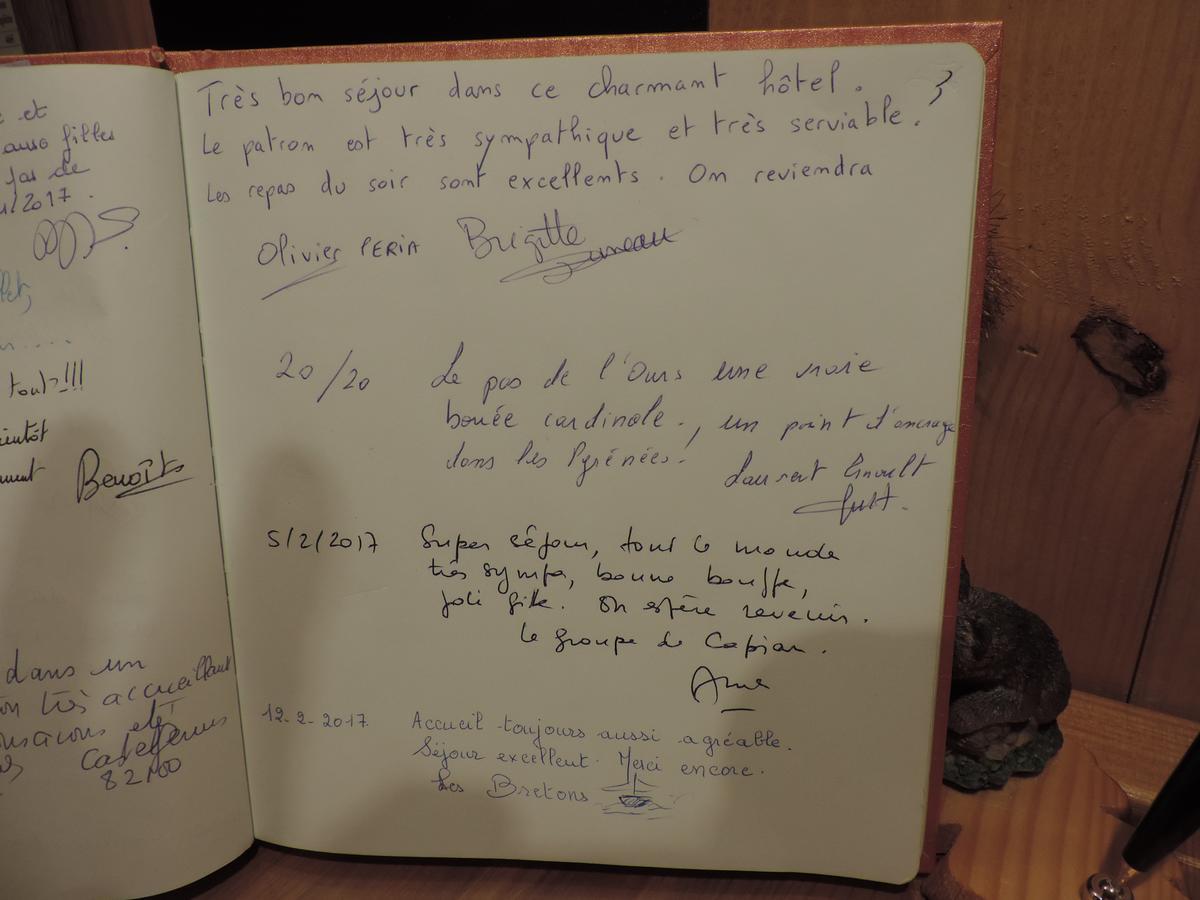 et
filles
de
/2017.
tout !!!
Benoît
dans un
très accueillant
et
82100
3
Très bon séjour dans ce charmant hôtel.
Le patron est très sympathique et très serviable.
Les repas du soir sont excellents. On reviendra
Olivier PERIA Brigitte
20/20 Le pas de l'Ours une vraie
bouée cardinale., un point d'ancrage
dans les Pyrénées.
Laurent
5/2/2017 Super séjour, tout le monde
très sympa, bonne bouffe,
joli gîte. On espère revenir.
le groupe de Capian.
Anne
12-2-2017 Accueil toujours aussi agréable.
Séjour excellent. Merci encore.
Les Bretons